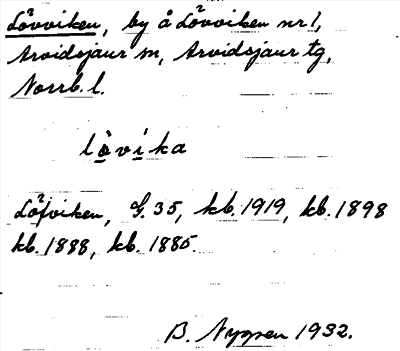 Lövviken, by å Lövviken nr 1,
Arvidsjaur sn, Arvidsjaur tg,
Norrb. l.
lòvika
Löfviken, G. 35, kb. 1919, kb. 1898
kb. 1888, kb. 1885.
B. Nyppen 1932.